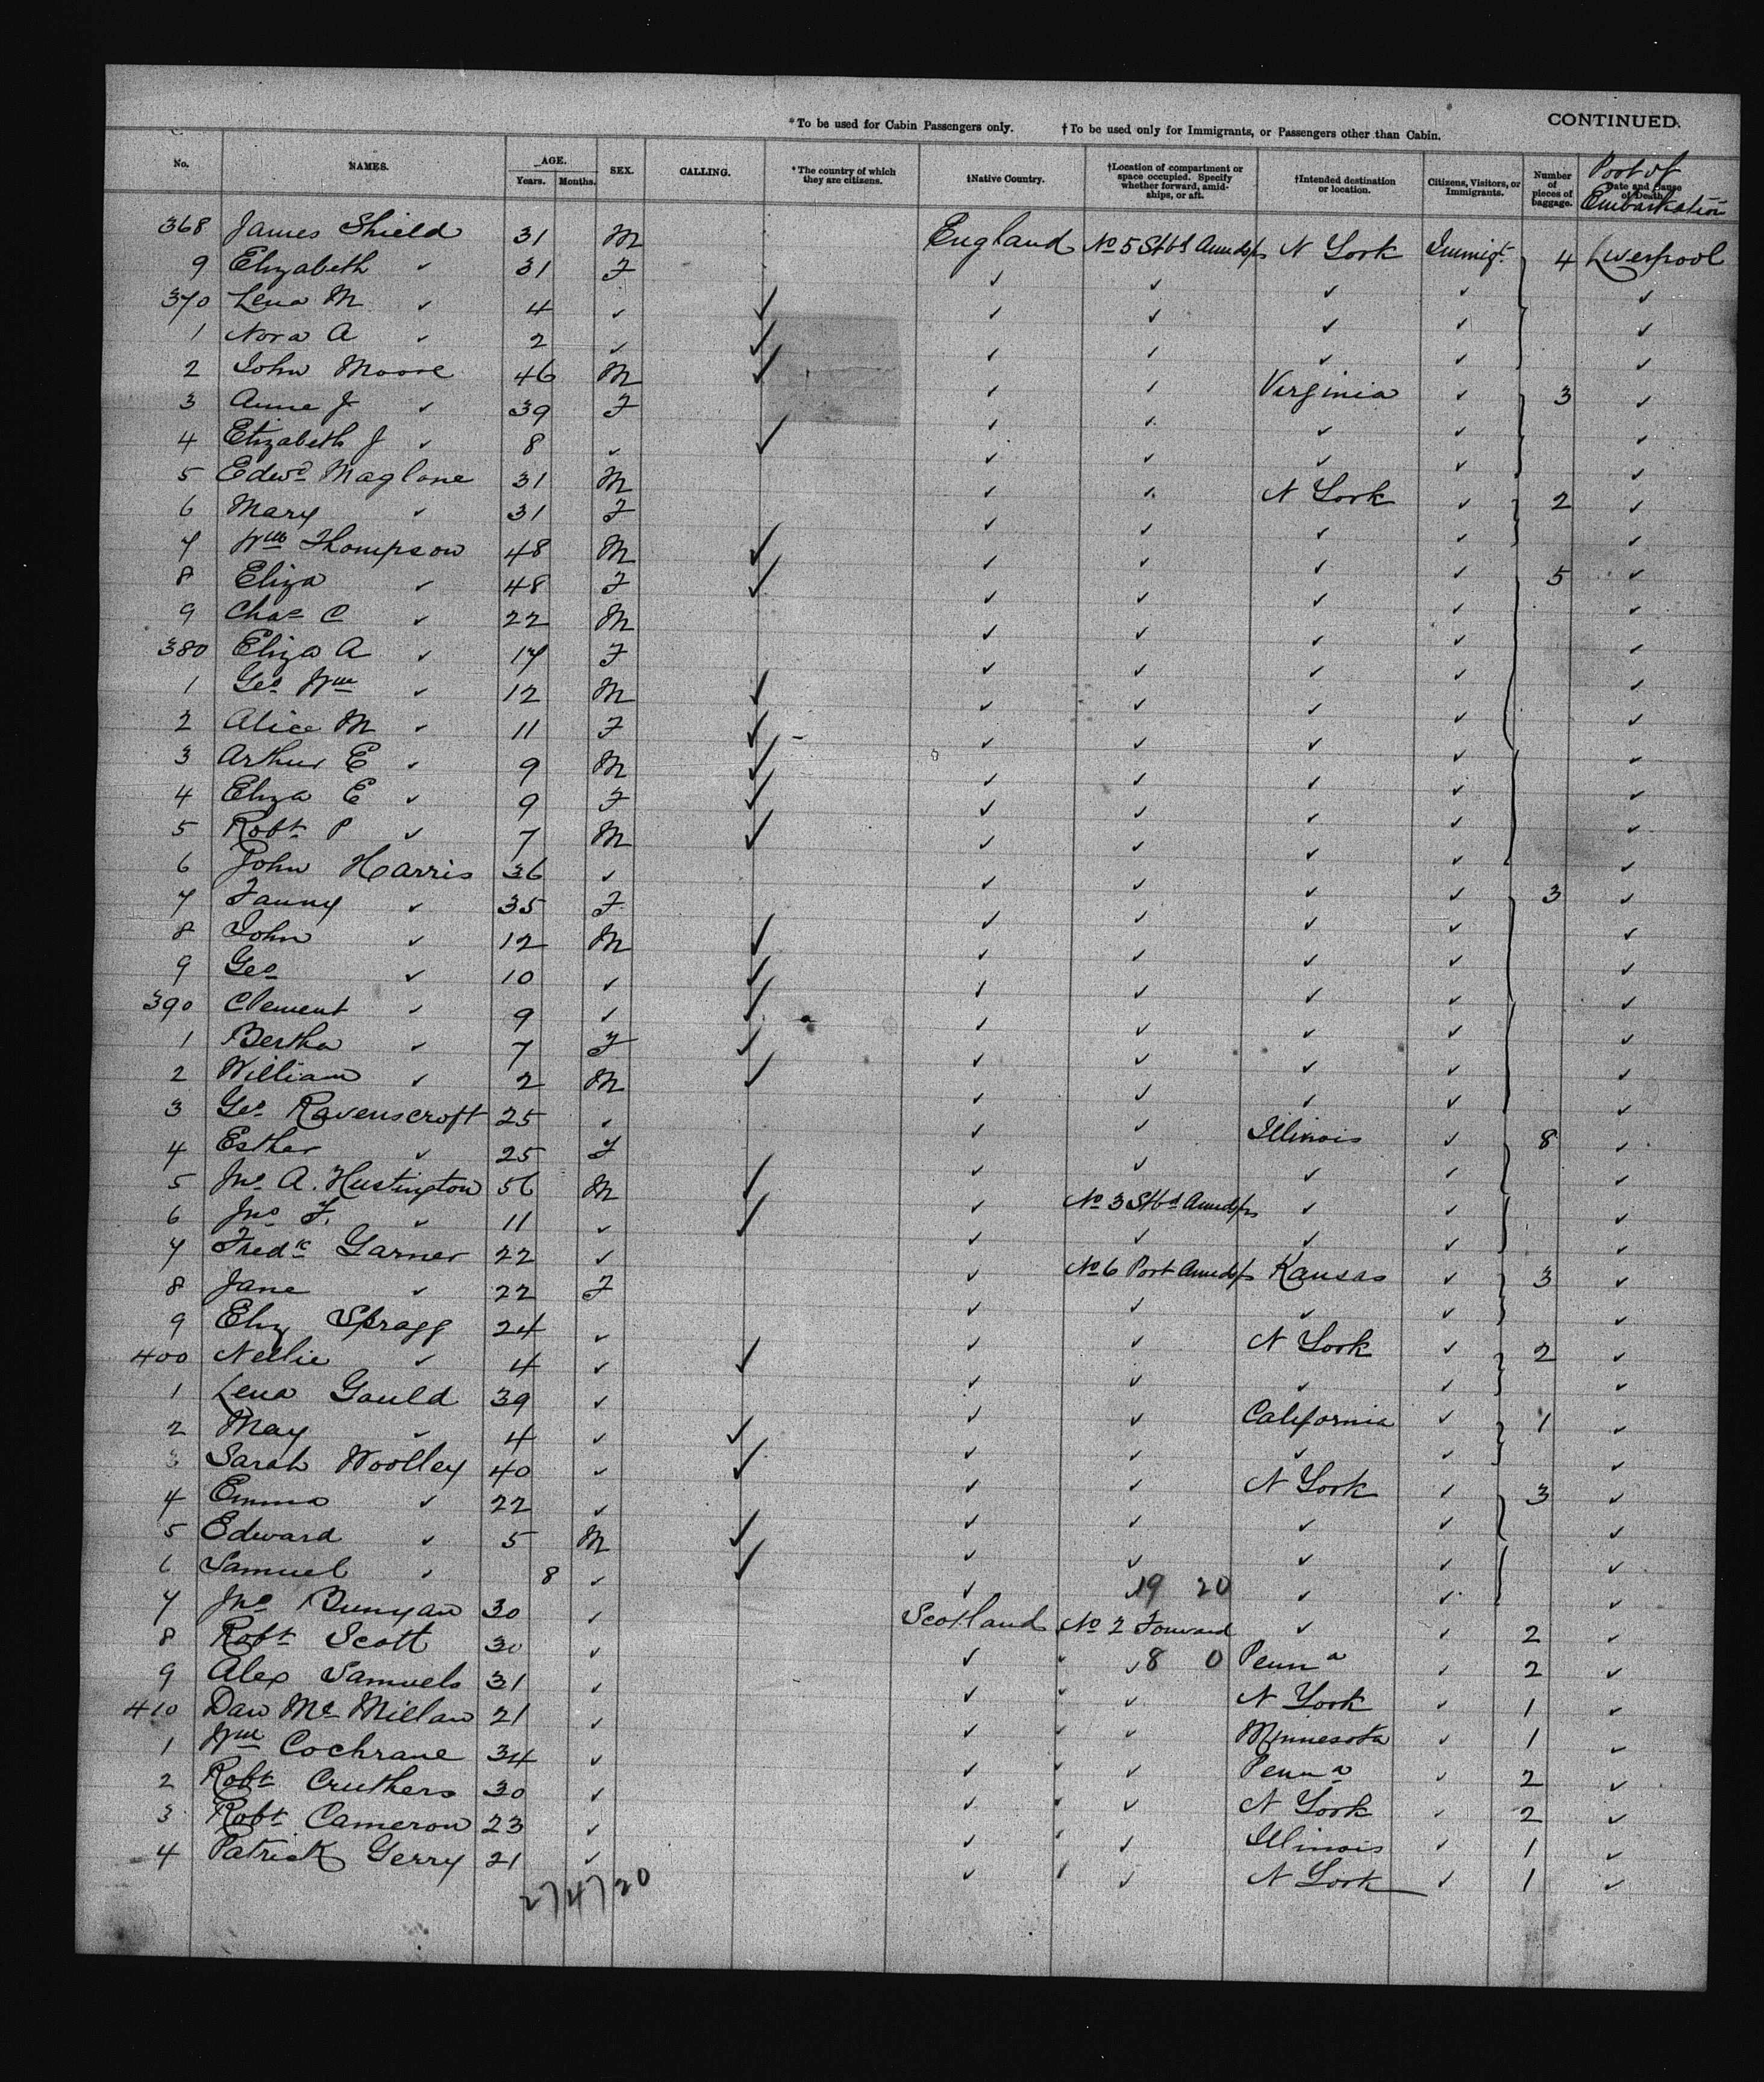 CONTINUED.
*To be used for Cabin Passengers only. †To be used only for Immigrants, or Passengers other than Cabin.
No. NAMES. AGE. Years. Months. SEX. CALLING. *The country of which they are citizens. †Native Country. †Location of compartment or space occupied. Specify whether forward, amidships, or aft. †Intended destination or location. Citizens, Visitors, or Immigrants. Number of pieces of baggage. Date and Cause of Death Port of Embarkation
368 James Shield 31 M England No 5 Stbd Amidsps N York Immigt 4 Liverpool
9 Elizabeth ✓ 31 F ✓ ✓ ✓ ✓ ✓
370 Lena M ✓ 4 ✓ ✓ ✓ ✓ ✓ ✓ ✓
1 Nora A ✓ 2 ✓ ✓ ✓ ✓ ✓ ✓ ✓
2 John Moore 46 M ✓ ✓ ✓ Virginia ✓ 3 ✓
3 Anne J ✓ 39 F ✓ ✓ ✓ ✓ ✓
4 Elizabeth J ✓ 8 ✓ ✓ ✓ ✓ ✓ ✓ ✓
5 Edwd Maglone 31 M ✓ ✓ N York ✓ 2 ✓
6 Mary ✓ 31 F ✓ ✓ ✓ ✓ ✓
7 Wm Thompson 48 M ✓ ✓ ✓ ✓ ✓ 5 ✓
8 Eliza ✓ 48 F ✓ ✓ ✓ ✓ ✓ ✓
9 Chas C ✓ 22 M ✓ ✓ ✓ ✓ ✓
380 Eliza A ✓ 17 F ✓ ✓ ✓ ✓ ✓
1 Geo Wm ✓ 12 M ✓ ✓ ✓ ✓ ✓ ✓
2 Alice M ✓ 11 F ✓ ✓ ✓ ✓ ✓ ✓
3 Arthur E ✓ 9 M ✓ ✓ ✓ ✓ ✓ ✓
4 Eliza E ✓ 9 F ✓ ✓ ✓ ✓ ✓ ✓
5 Robt P ✓ 7 M ✓ ✓ ✓ ✓ ✓ ✓
6 John Harris 36 ✓ ✓ ✓ ✓ ✓ 3 ✓
7 Fanny ✓ 35 F ✓ ✓ ✓ ✓ ✓
8 John ✓ 12 M ✓ ✓ ✓ ✓ ✓ ✓
9 Geo ✓ 10 ✓ ✓ ✓ ✓ ✓ ✓ ✓
390 Clement ✓ 9 ✓ ✓ ✓ ✓ ✓ ✓ ✓
1 Bertha ✓ 7 F ✓ ✓ ✓ ✓ ✓ ✓
2 William ✓ 2 M ✓ ✓ ✓ ✓ ✓ ✓
3 Geo Ravenscroft 25 ✓ ✓ ✓ Illinois ✓ 8 ✓
4 Esther ✓ 25 F ✓ ✓ ✓ ✓ ✓
5 Jno A. Hustington 56 M ✓ ✓ No 3 Stbd Amidsps ✓ ✓ ✓
6 Jno F. ✓ 11 ✓ ✓ ✓ ✓ ✓ ✓ ✓
7 Fredk Garner 22 ✓ ✓ No 6 Port Amidsps Kansas ✓ 3 ✓
8 Jane ✓ 22 F ✓ ✓ ✓ ✓ ✓
9 Eliz Spragg 24 ✓ ✓ ✓ N York ✓ 2 ✓
400 Nellie ✓ 4 ✓ ✓ ✓ ✓ ✓ ✓ ✓
1 Lena Gauld 39 ✓ ✓ ✓ California ✓ 1 ✓
2 May ✓ 4 ✓ ✓ ✓ ✓ ✓ ✓ ✓
3 Sarah Woolley 40 ✓ ✓ ✓ ✓ N York ✓ 3 ✓
4 Emma ✓ 22 ✓ ✓ ✓ ✓ ✓ ✓
5 Edward ✓ 5 M ✓ ✓ ✓ ✓ ✓ ✓
6 Samuel ✓ 8 ✓ ✓ ✓ ✓ 19 20 ✓ ✓ ✓
7 Jno Bunyan 30 ✓ Scotland No 2 Forward ✓ ✓ 2 ✓
8 Robt Scott 30 ✓ ✓ ✓ 8 0 Penna ✓ 2 ✓
9 Alex Samuels 31 ✓ ✓ ✓ N York ✓ 1 ✓
410 Dan McMillan 21 ✓ ✓ ✓ Minnesota ✓ 1 ✓
1 Wm Cochrane 34 ✓ ✓ ✓ Penna ✓ 2 ✓
2 Robt Cruthers 30 ✓ ✓ ✓ N York ✓ 2 ✓
3 Robt Cameron 23 ✓ ✓ ✓ Illinois ✓ 1 ✓
4 Patrick Gerry 21 ✓ ✓ ✓ N York ✓ 1 ✓
27 47 20